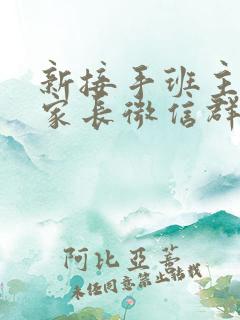 新接手班主
家长微信群
阿比亞蓄
未经同意禁止转载